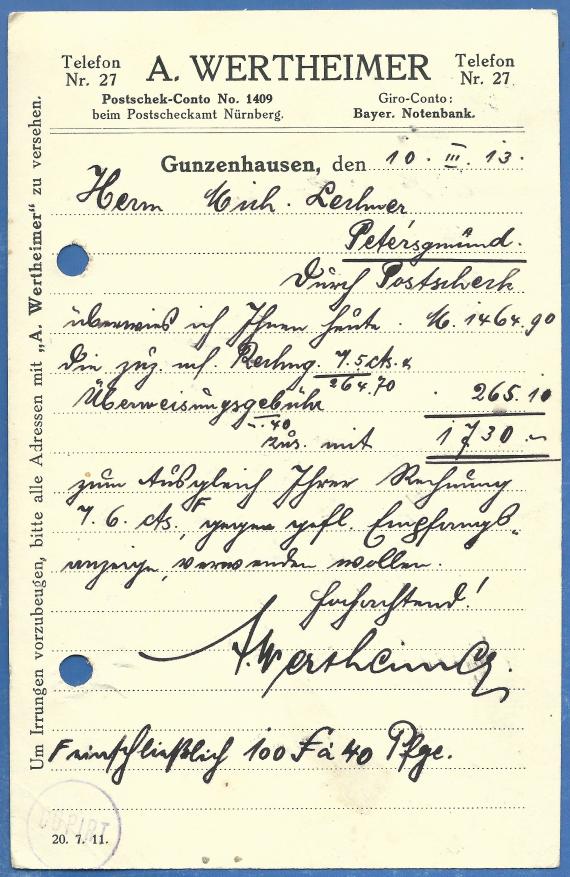 Telefon Nr. 27
A. WERTHEIMER
Telefon Nr. 27
Postschek-Conto No. 1409
beim Postscheckamt Nürnberg.
Giro-Conto:
Bayer. Notenbank.
Gunzenhausen, den 10. III. 13.
Herrn Mich. Lechner
Petersgmünd.
Durch Postscheck
überwies ich Ihnen heute M. 1464.90
die zuz. m/. Rechng. 7.5 cts. &
264.70
Überweisungsgebühr 265.10
-.40
zus. mit 1730.-
zum Ausgleich Ihrer Rechnung
7. 6. cts. F gegen gefl. Empfangs-
anzeige, verwenden wollen.
Hochachtend!
A. Wertheimer
F einschließlich 100 F à 40 Pfge.
COPIRT
20. 7. 11.
Um Irrungen vorzubeugen, bitte alle Adressen mit „A. Wertheimer" zu versehen.